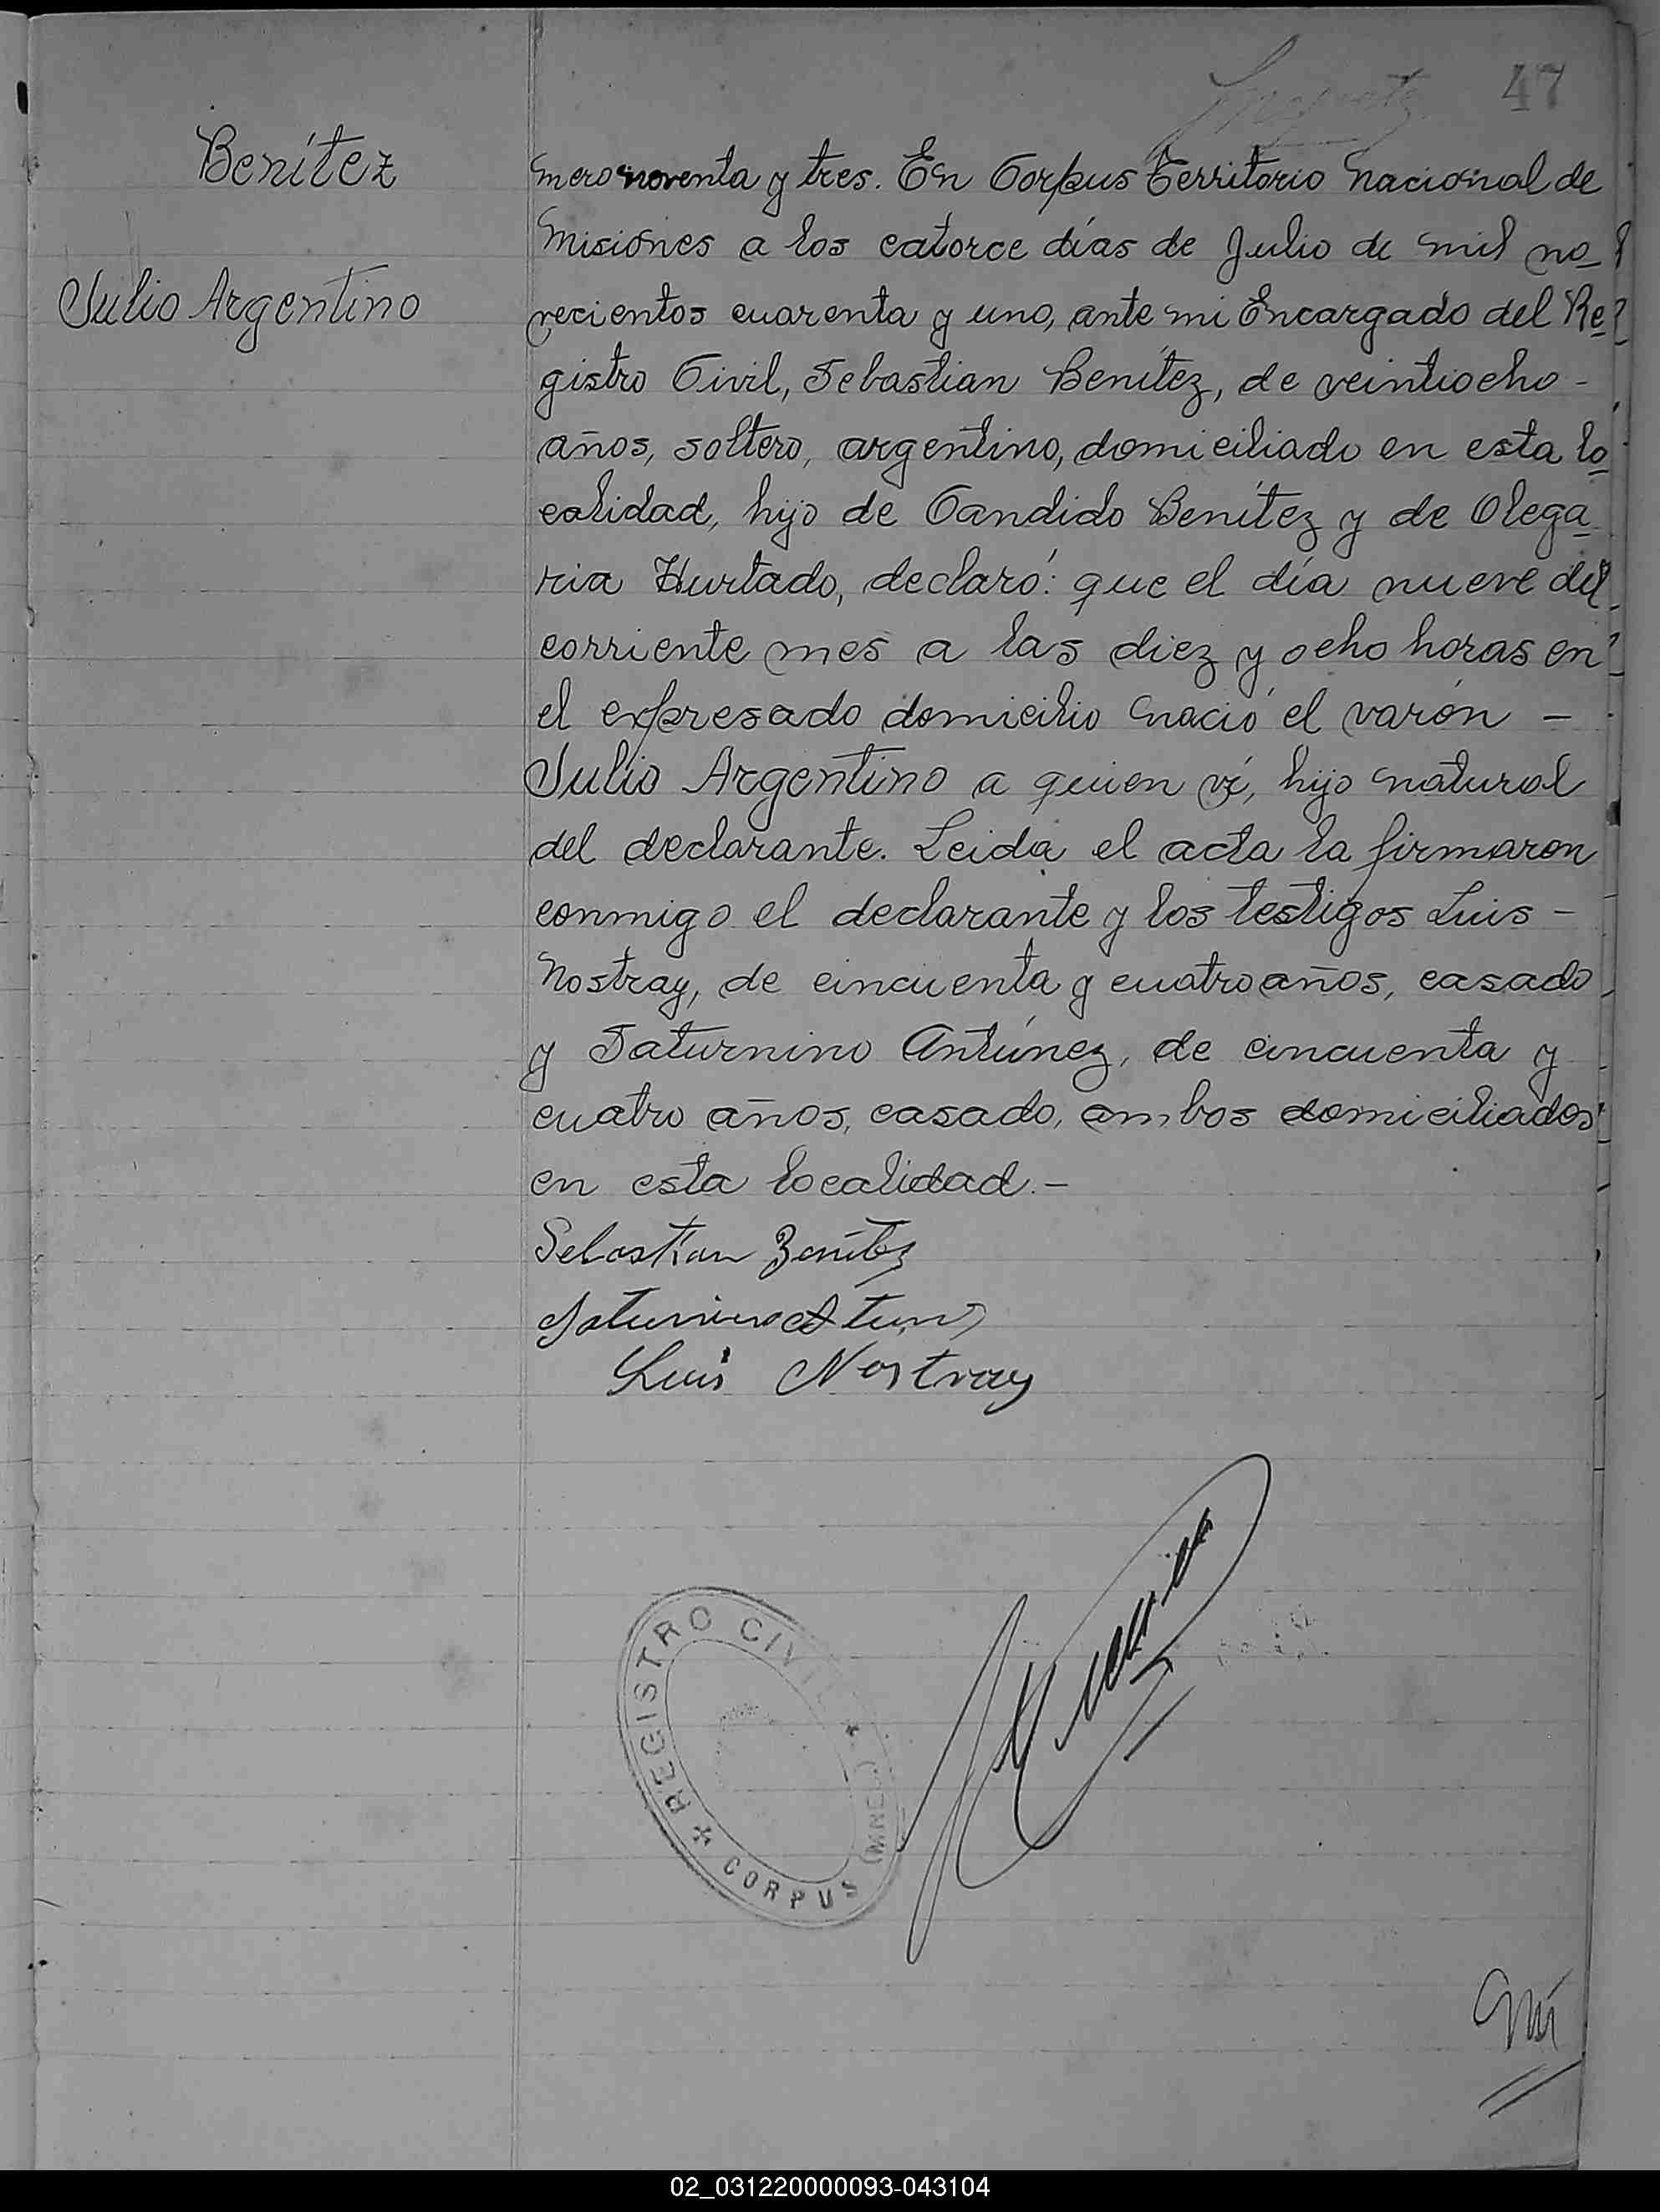 47
Benítez
Julio Argentino
mero noventa y tres. En Corpus Territorio Nacional de
Misiones a los catorce días de Julio de mil no_
vecientos cuarenta y uno, ante mi Encargado del Re_
gistro Civil, Sebastian Benítez, de veintiocho -
años, soltero, argentino, domiciliado en esta lo_
calidad, hijo de Candido Benítez y de Olega_
ria Hurtado, declaró: que el día nueve del
corriente mes a las diez y ocho horas en
el expresado domicilio nació el varón -
Julio Argentino a quien ví, hijo natural
del declarante. Leida el acta la firmaron
conmigo el declarante y los testigos Luis -
Nostray, de cincuenta y cuatro años, casado
y Saturnino Antúnez, de cincuenta y
cuatro años, casado, ambos domiciliados
en esta localidad.-
Sebastian Benitez
Saturnino
Luis Nostray
REGISTRO CIVIL
CORPUS
02_031220000093-043104